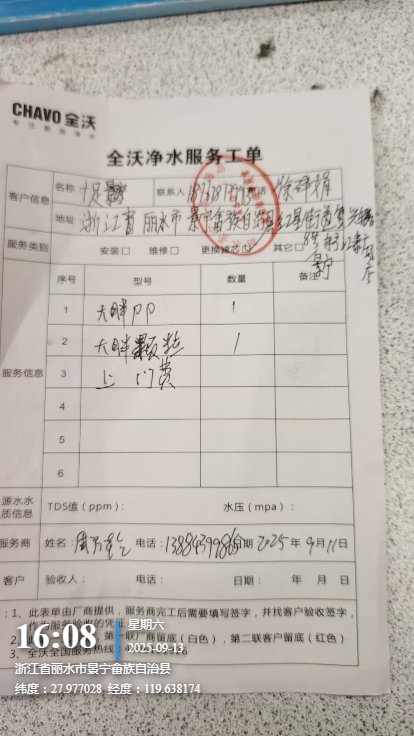 CHAVO 全沃
全沃净水服务工单
客户信息
名称
联系人
电话
地址
浙江省 丽水市 景宁畲族自治县红星街道
服务类别
安装□ 维修□ 更换滤芯 其它□
序号 型号 数量 备注
服务信息
1 大胖PP 1
2 大胖颗粒 1
3 上门费
4
5
6
源水水质信息
TDS值（ppm）： 水压（mpa）：
服务商 姓名： 电话： 日期 2025年 9月11日
客户 验收人： 电话： 日期： 年 月 日
：1、此表单由厂商提供，服务商完工后需要填写签字，并找客户验收签字，
作为服务验收的凭证
2、 第一联厂商留底（白色），第二联客户留底（红色）
3、全沃全国服务热线：
16:08
星期六
2025-09-13
浙江省丽水市景宁畲族自治县
纬度：27.977028 经度：119.638174